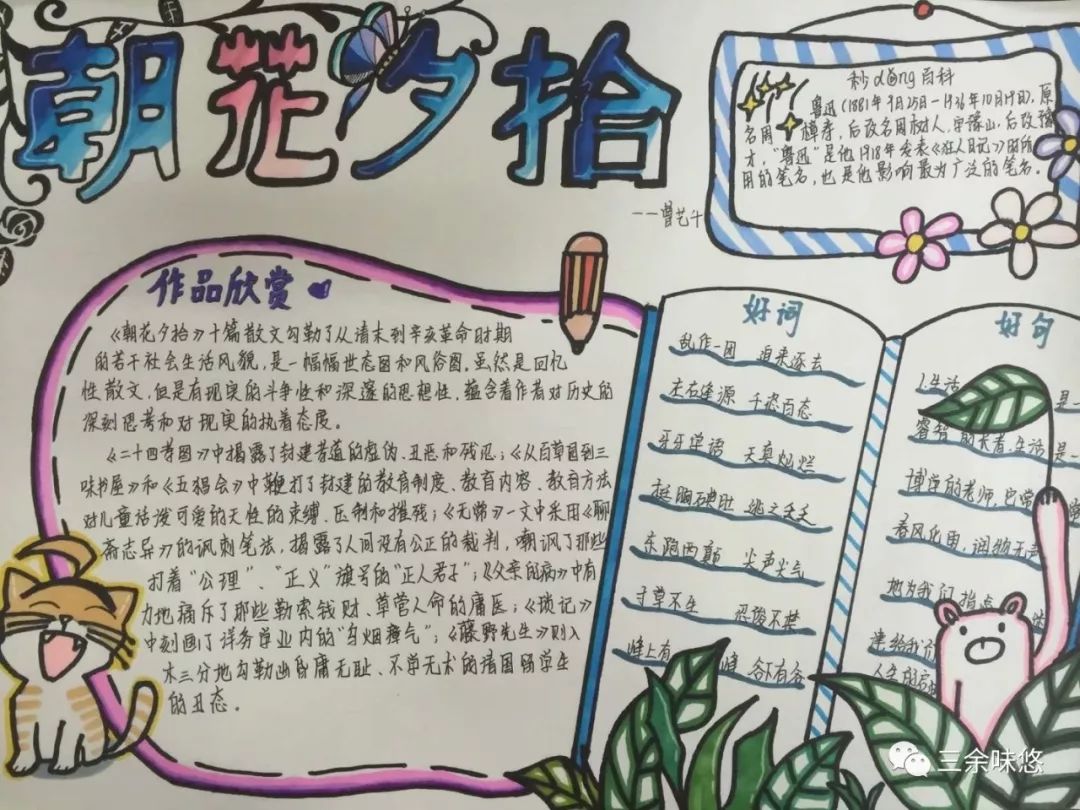 朝花夕拾
——曾艺斗
秒dǒng百科
鲁迅(1881年9月25日-1936年10月19日),原
名周樟寿,后改名周树人,字豫山,后改豫
才,“鲁迅”是他1918年发表《狂人日记》时所
用的笔名,也是他影响最为广泛的笔名。
作品欣赏
《朝花夕拾》十篇散文勾勒了从清末到辛亥革命时期
的若干社会生活风貌,是一幅幅世态图和风俗图。虽然是回忆
性散文,但是有现实的斗争性和深邃的思想性,蕴含着作者对历史的
深刻思考和对现实的执着态度。
《二十四孝图》中揭露了封建孝道的虚伪、丑恶和残忍;《从百草园到三
味书屋》和《五猖会》中鞭打了封建的教育制度、教育内容、教育方法
对儿童活泼可爱的天性的束缚、压制和摧残;《无常》一文中采用《聊
斋志异》的讽刺笔法,揭露了人间没有公正的裁判,嘲讽了那些
打着“公理”、“正义”旗号的“正人君子”;《父亲的病》中有
力地痛斥了那些勒索钱财、草菅人命的庸医;《琐记》
中刻画了洋务学业内的“乌烟瘴气”;《藤野先生》则入
木三分地勾勒出昏庸无耻、不学无术的清国留学生
的丑态。
好词
乱作一团 追来逐去
左右逢源 千姿百态
牙牙学语 天真灿烂
挺胸碘肚 逃之夭夭
东跑西颠 尖声尖气
寸草不生 忍俊不禁
峰上有 峰 谷下有谷
好句
1.生活 是一
睿智的长者,生活是一
博学的老师,它常
春风化雨,润物无
地为我们指点
建给我们
人生的启
三余味悠